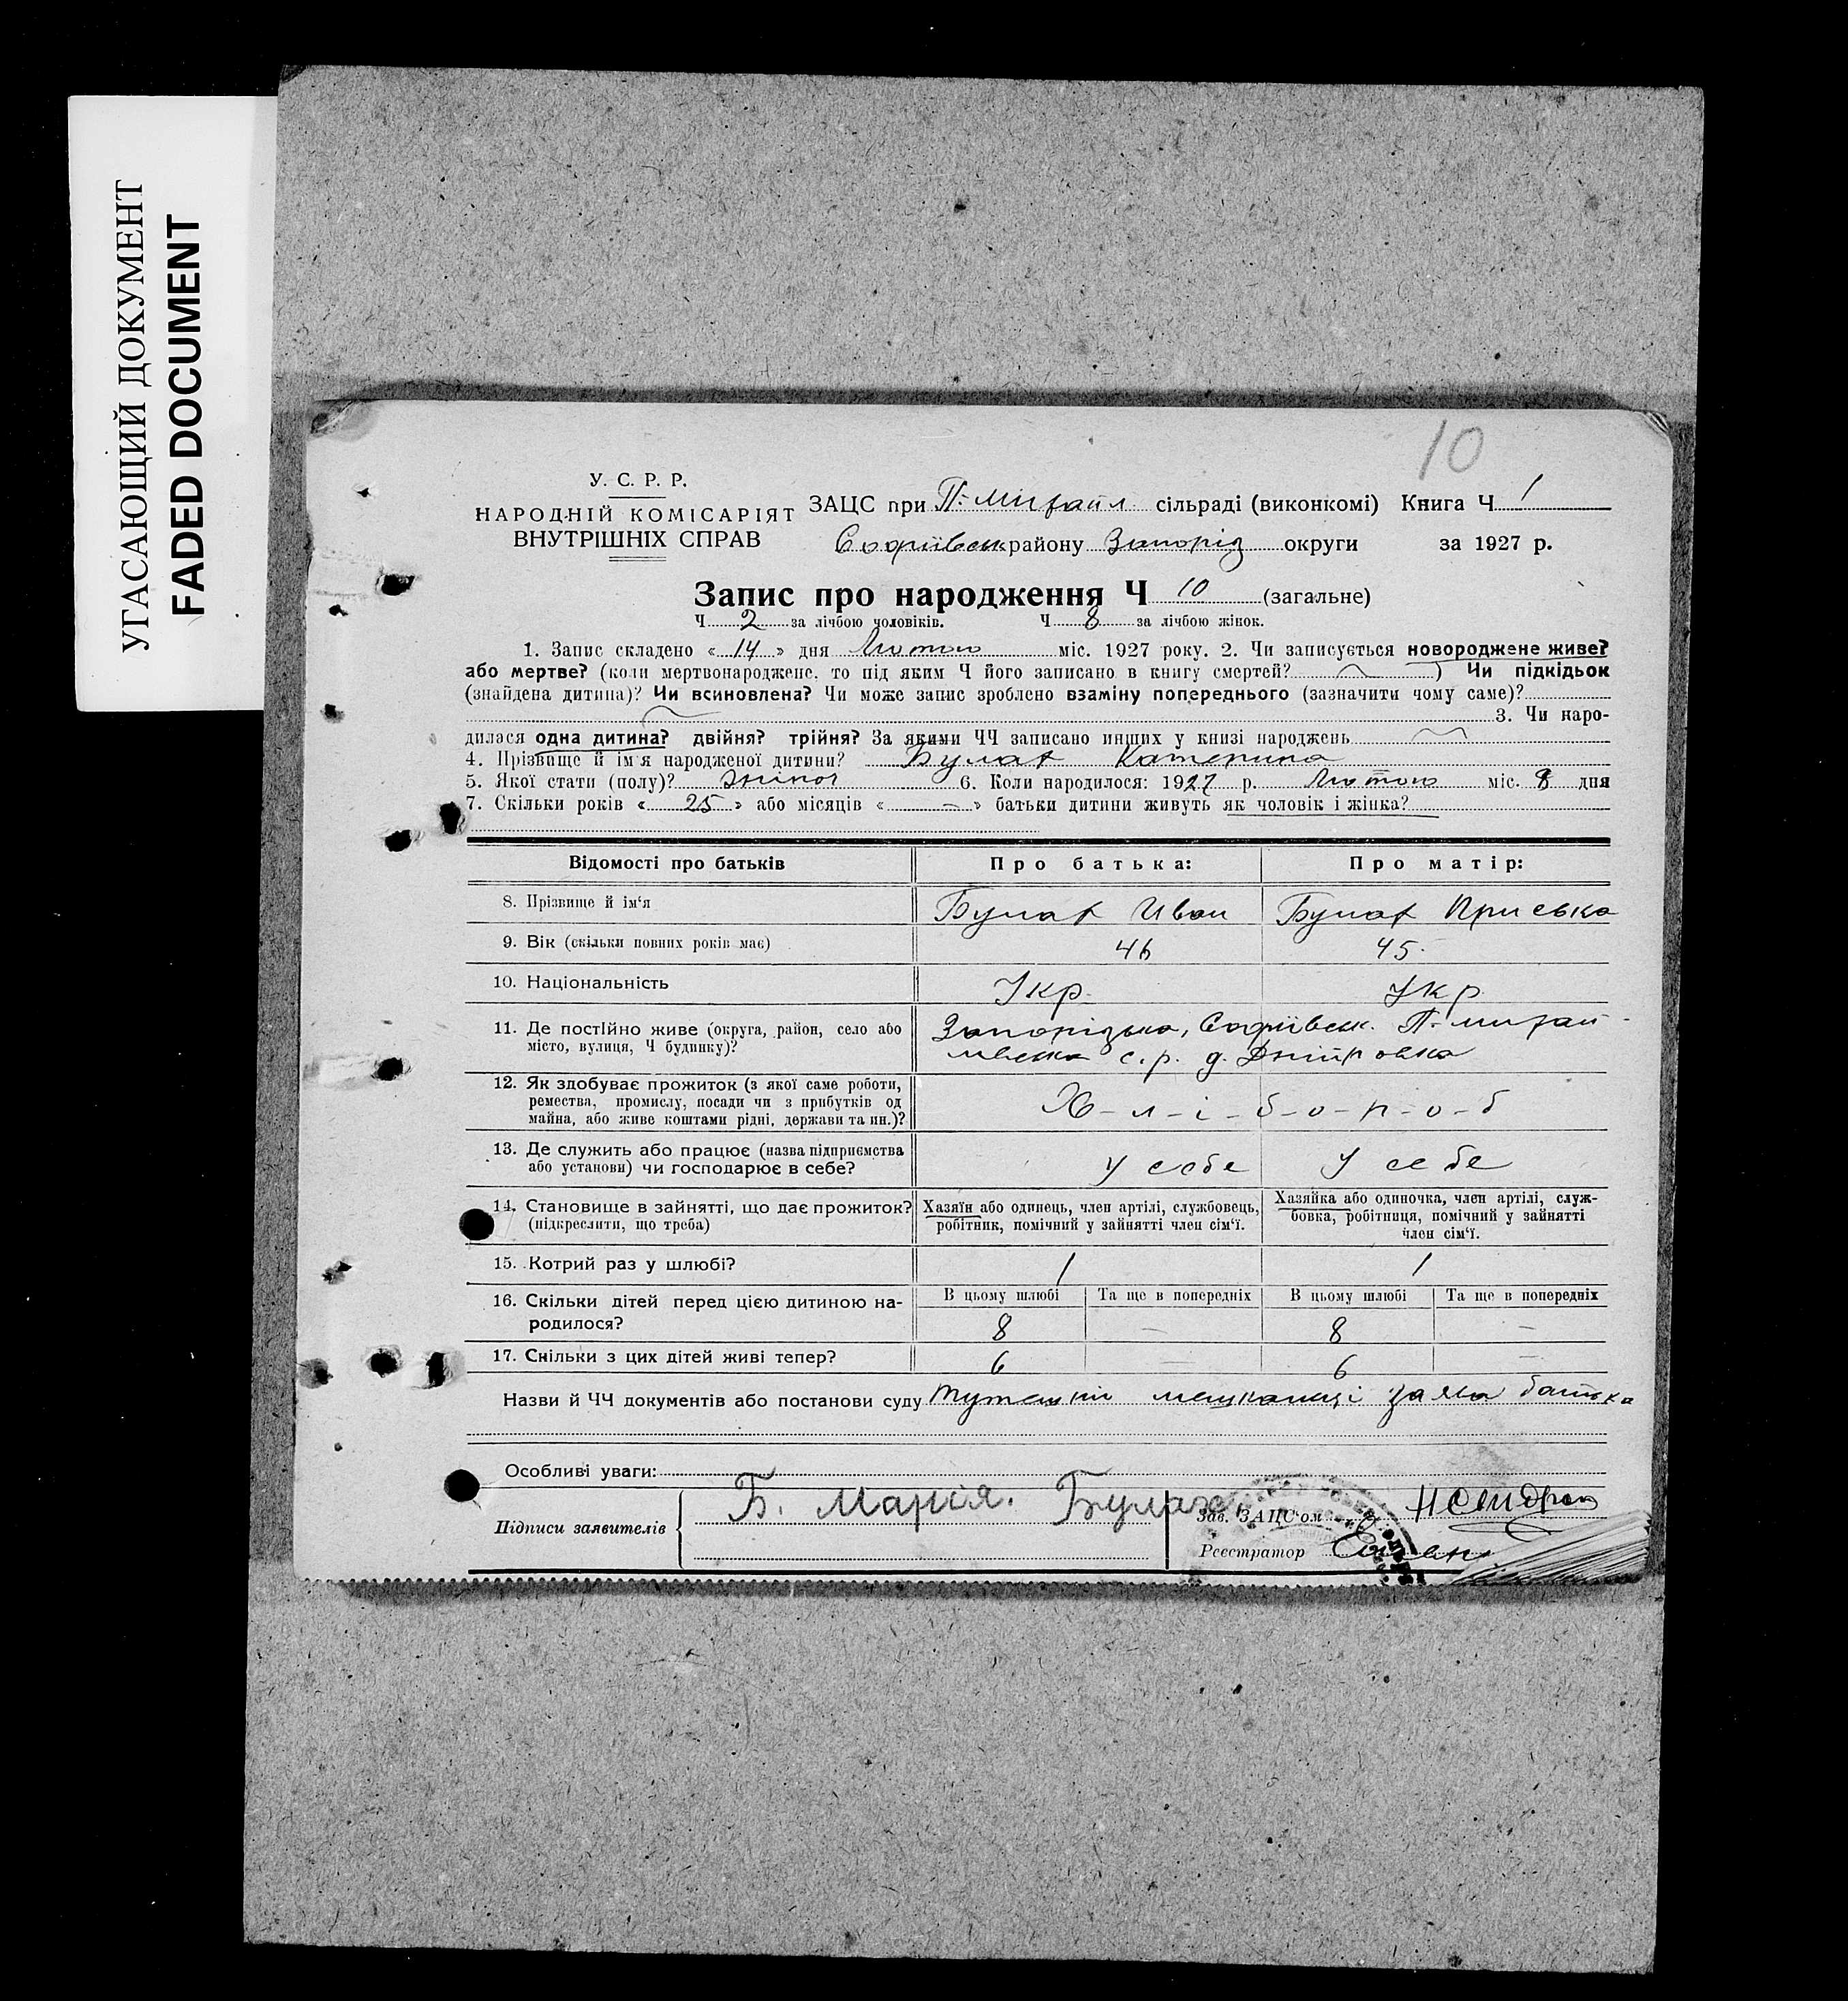 УГАСАЮЩИЙ ДОКУМЕНТ
FADED DOCUMENT
10
У. С. Р. Р.
НАРОДНІЙ КОМІСАРІЯТ
ВНУТРІШНІХ СПРАВ
ЗАЦС при П.-Михайл сільраді (виконкомі) Книга Ч 1
Софіївськ району Запоріз округи за 1927 р.
Запис про народження Ч 10 (загальне)
Ч 2 за лічбою чоловіків. Ч 8 за лічбою жінок.
1. Запис складено « 14 » дня Лютого міс. 1927 року. 2. Чи записується новороджене живе?
або мертве? (коли мертвонароджене, то під яким Ч його записано в книгу смертей? ) Чи підкідьок
(знайдена дитина)? Чи всиновлена? Чи може запис зроблено взаміну попереднього (зазначити чому саме)?
3. Чи наро-
дилася одна дитина? двійня? трійня? За якими ЧЧ записано инших у книзі народжень
4. Прізвище й ім'я народженої дитини? Булах Катерина
5. Якої стати (полу)? жіноч 6. Коли народилося: 1927 р. Лютого міс. 8 дня
7. Скільки років « 25 » або місяців « – » батьки дитини живуть як чоловік і жінка?
Відомості про батьків Про батька: Про матір:
8. Прізвище й ім'я Булах Иван Булах Приська
9. Вік (скільки повних років має) 46 45.
10. Національність Укр. Укр
11. Де постійно живе (округа, район, село або Запорізька, Софіївськ. П.-михай-
місто, вулиця, Ч будинку)? лівська с.р. д. Дніпровка
12. Як здобуває прожиток (з якої саме роботи,
ремества, промислу, посади чи з прибутків од Х-л-і-б-о-р-о-б
майна, або живе коштами рідні, держави та ин.)?
13. Де служить або працює (назва підприємства
або установи) чи господарює в себе? у себе У себе
14. Становище в зайнятті, що дає прожиток? Хазяїн або одинець, член артілі, службовець, Хазяйка або одиночка, член артілі, служ-
(підкреслити, що треба) робітник, помічний у зайнятті член сім'ї. бовка, робітниця, помічний у зайнятті
член сім'ї.
15. Котрий раз у шлюбі? 1 1
16. Скільки дітей перед цією дитиною на- В цьому шлюбі Та ще в попередніх В цьому шлюбі Та ще в попередніх
родилося? 8 – 8 –
17. Скільки з цих дітей живі тепер? 6 – 6 –
Назви й ЧЧ документів або постанови суду Тутешні мешканці заява батька
Особливі уваги:
Підписи заявителів Б. Марія. Булах
Зав. ЗАЦС'ом
Реєстратор